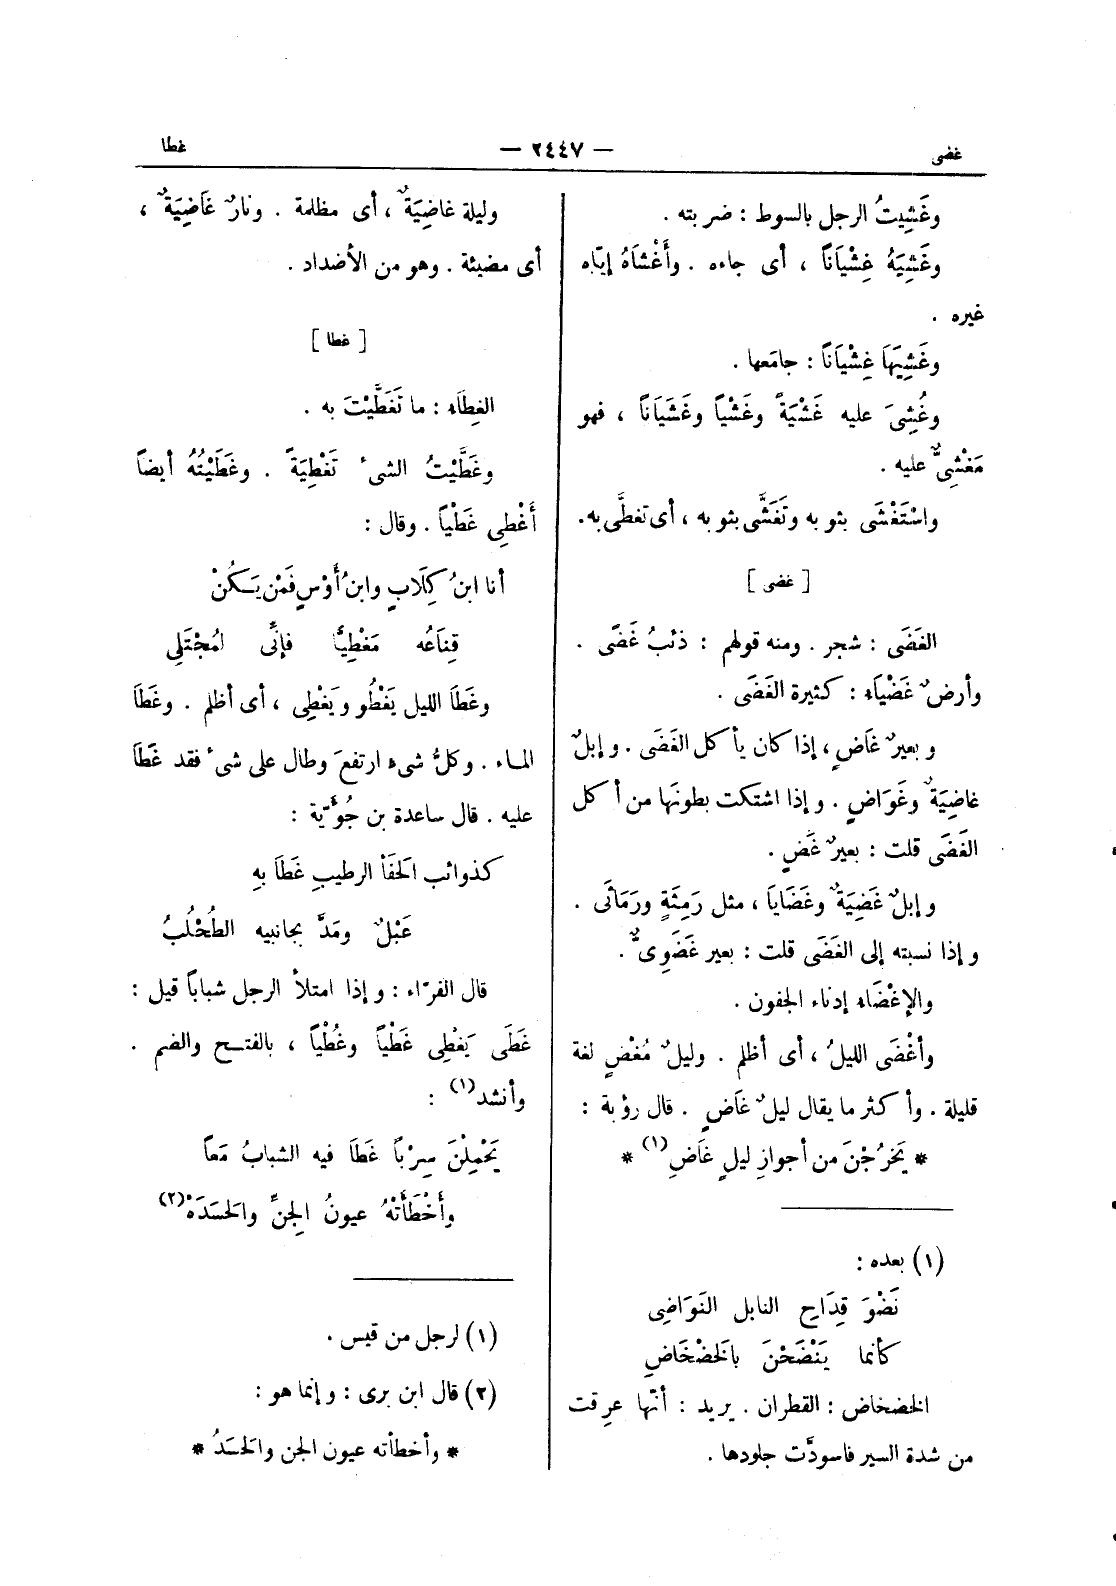 غضى
— ٢٤٤٧ —
غطا
وغَشِيتُ الرجل بالسوط : ضربته .
وغَشِيَهُ غِشْيَاناً ، أى جاءه . وأَغْشَاهُ إيّاه
غيره .
وغَشِيَهَا غِشْيَاناً : جامَعها .
وغُشِىَ عليه غَشْيَةً وغَشْياً وغَشَيَاناً ، فهو
مَغْشِىٌّ عليه .
واسْتَغْشَى بثوبه وتَغَشَّى بثوبه ، أى تغطَّى به .
[ غضى ]
الغَضَى : شجر . ومنه قولهم : ذئبُ غَضًى .
وأرضٌ غَضْيَاء : كثيرة الغَضَى .
وبعيرٌ غَاضٍ ، إذا كان يأكل الغَضَى . وإبلٌ
غاضِيَةٌ وغَوَاضٍ . وإذا اشتكت بطونَها من أكل
الغَضَى قلت : بعيرٌ غَضٍ .
وإبلٌ غَضِيَةٌ وغَضَايَا ، مثل رَمِثَةٍ ورَمَاثَى .
وإذا نسبته إلى الغَضَى قلت : بعير غَضَوِىٌّ .
والإغْضَاء إدناء الجفون .
وأغْضَى الليلُ ، أى أظلم . وليلٌ مُغْضٍ لغة
قليلة . وأكثر ما يقال ليلٌ غَاضٍ . قال رؤبة :
* يَخرُجْنَ من أجوازِ ليلٍ غَاضِ (١) *
(١) بعده :
نَضْوَ قِدَاحِ النابل النَوَاضِى
كأنما يَنْضَحْنَ بالخَضْخَاضِ
الخضخاض : القطران . يريد : أنّها عرِقت
من شدة السير فاسودَّت جلودها .
وليلة غاضِيَةٌ ، أى مظلمة . ونارٌ غَاضِيَةٌ ،
أى مضيئة . وهو من الأضداد .
[ غطا ]
الغِطاَء : ما تَغَطَّيْتَ به .
وغَطَّيْتُ الشىء تَغْطِيَةً . وغَطَيْتُهُ أيضاً
أَغْطِى غَطْياً . وقال :
أنا ابنُ كِلَابٍ وابنُ أَوْسٍ فَمَنْ يَكُنْ
قِنَاعُه مَغْطِيًّا فإنِّى لمُجْتَلِى
وغَطَا الليل يَغْطُو ويَغْطِى ، أى أظلم . وغَطَا
الماء . وكلُّ شىء ارتفعَ وطال على شىء فقد غَطَا
عليه . قال ساعدة بن جُؤَيّة :
كذوائب الحَفَأِ الرطيبِ غَطَا بهِ
غَبْلٌ ومَدَّ بجانبيه الطُحْلُبُ
قال الفرّاء : وإذا امتلأ الرجل شباباً قيل :
غَطَى يَغْطِى غَطْياً وغُطْياً ، بالفتح والضم .
وأنشد (١) :
يَحْمِلْنَ سِرْباً غَطَا فيه الشبابُ مَعاً
وأَخْطَأَتْهُ عيونُ الجِنِّ والحَسَدَهْ (٢)
(١) لرجل من قيس .
(٢) قال ابن برى : وإنما هو :
* وأخطأته عيون الجن والحَسَدُ *